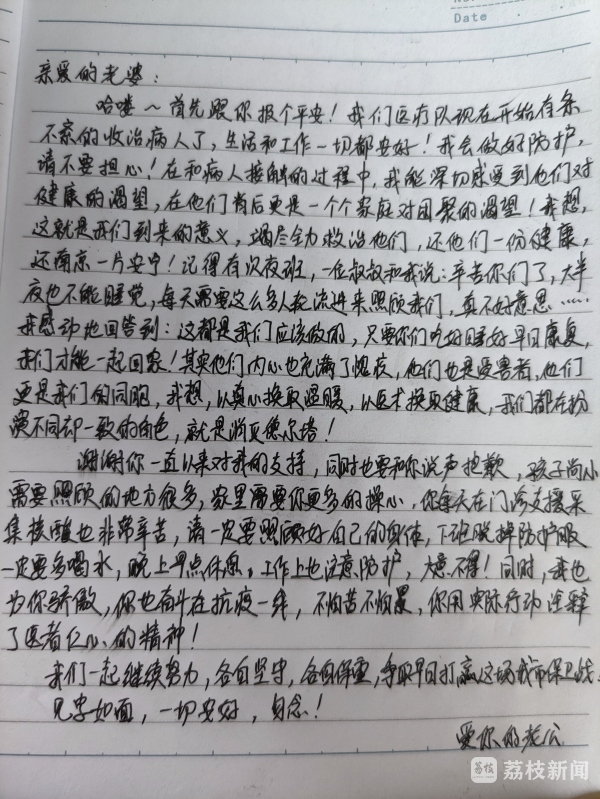 Date
亲爱的老婆：
哈喽～首先跟你报个平安！我们医疗队现在开始有条
不紊的收治病人了，生活和工作一切都安好！我会做好防护，
请不要担心！在和病人接触的过程中，我能深切感受到他们对
健康的渴望，在他们背后更是一个个家庭对团聚的渴望！我想，
这就是我们到来的意义，竭尽全力救治他们，还他们一份健康，
还南京一片安宁！记得有次夜班，一位叔叔和我说：辛苦你们了，大半
夜也不能睡觉，每天需要这么多人轮流进来照顾我们，真不好意思……
我感动地回答到：这都是我们应该做的，只要你们吃好睡好早日康复，
我们才能一起回家！其实他们内心也充满了愧疚，他们也是受害者，他们
更是我们的同胞，我想，以真心换取温暖，以医术换取健康，我们都在扮
演不同却一致的角色，就是消灭德尔塔！
谢谢你一直以来对我的支持，同时也要和你说声抱歉，孩子尚小
需要照顾的地方很多，家里需要你更多的操心，你每天在门诊支援采
集核酸也非常辛苦，请一定要照顾好自己的身体，下班脱掉防护服
一定要多喝水，晚上早点休息。工作上也注意防护，大意不得！同时，我也
为你骄傲，你也奋斗在抗疫一线，不怕苦不怕累，你用实际行动诠释
了医者仁心的精神！
我们一起继续努力，各自坚守，各自保重，争取早日打赢这场我市保卫战。
见字如面，一切安好，勿念！
爱你的老公
荔枝 荔枝新闻